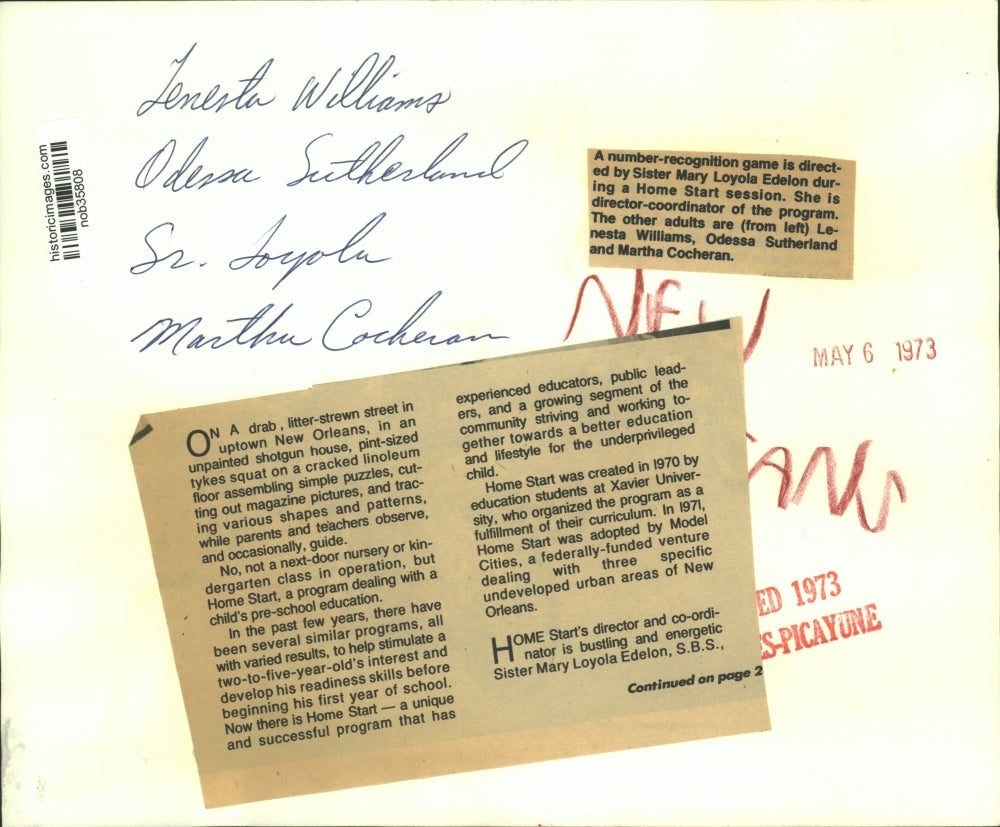 Lenesta Williams
Odessa Sutherland
Sr. Loyola
Martha Cocheran
historicimages.com
nob35808
A number-recognition game is direct-
ed by Sister Mary Loyola Edelon dur-
ing a Home Start session. She is
director-coordinator of the program.
The other adults are (from left) Le-
nesta Williams, Odessa Sutherland
and Martha Cocheran.
MAY 6 1973
ON A drab, litter-strewn street in
uptown New Orleans, in an
unpainted shotgun house, pint-sized
tykes squat on a cracked linoleum
floor assembling simple puzzles, cut-
ting out magazine pictures, and trac-
ing various shapes and patterns,
while parents and teachers observe,
and occasionally, guide.
No, not a next-door nursery or kin-
dergarten class in operation, but
Home Start, a program dealing with a
child's pre-school education.
In the past few years, there have
been several similar programs, all
with varied results, to help stimulate a
two-to-five-year-old's interest and
develop his readiness skills before
beginning his first year of school.
Now there is Home Start — a unique
and successful program that has
experienced educators, public lead-
ers, and a growing segment of the
community striving and working to-
gether towards a better education
and lifestyle for the underprivileged
child.
Home Start was created in 1970 by
education students at Xavier Univer-
sity, who organized the program as a
fulfillment of their curriculum. In 1971,
Home Start was adopted by Model
Cities, a federally-funded venture
dealing with three specific
undeveloped urban areas of New
Orleans.
HOME Start's director and co-ordi-
nator is bustling and energetic
Sister Mary Loyola Edelon, S.B.S.,
Continued on page 2
ED 1973
S-PICAYUNE